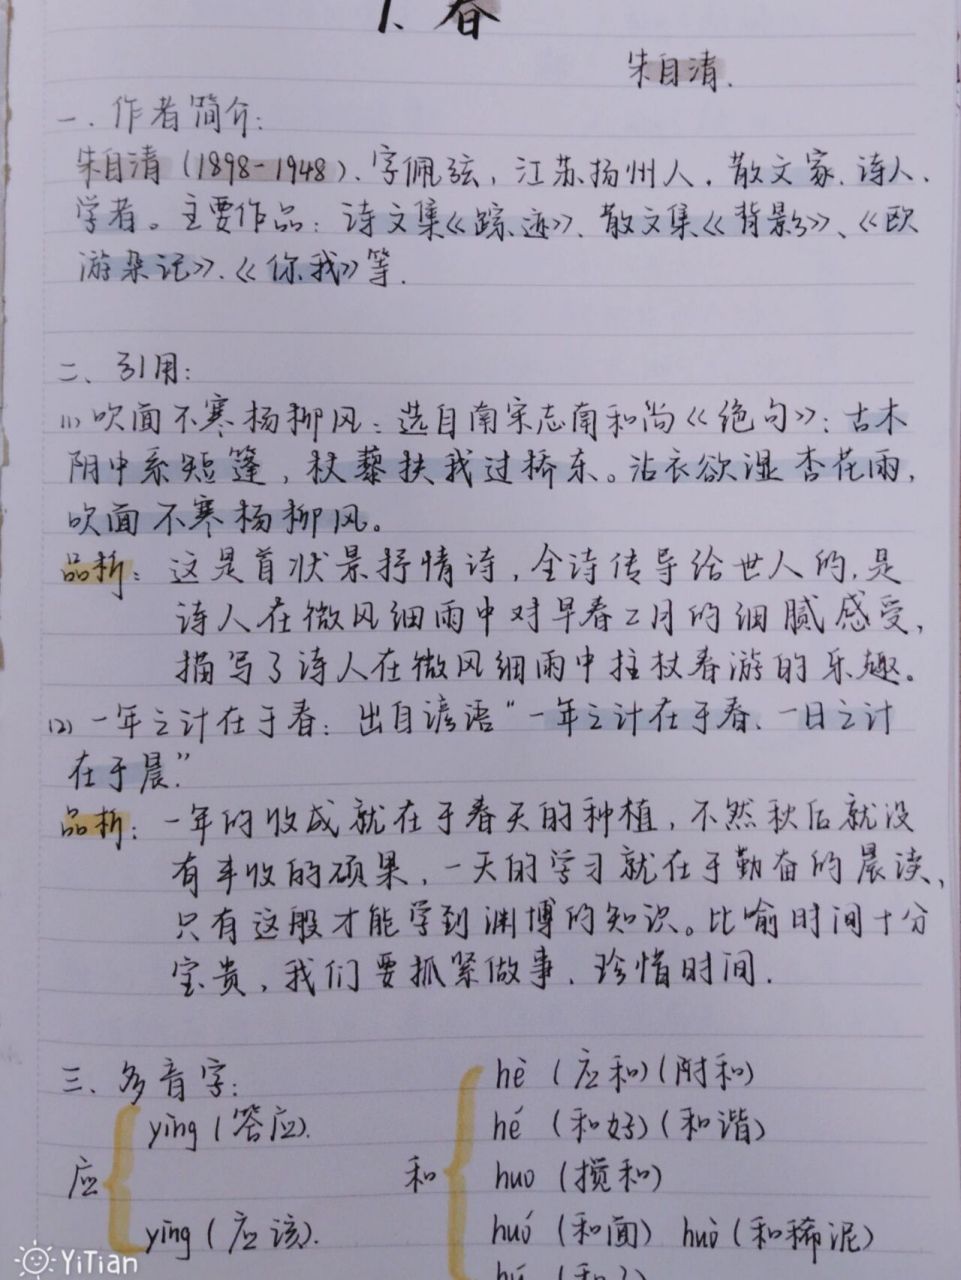 1、春
朱自清.
一.作者简介:
朱自清(1898-1948).字佩弦,江苏扬州人.散文家.诗人.
学者。主要作品:诗文集《踪迹》、散文集《背影》、《欧
游杂记》.《你我》等.
二、引用:
(1)吹面不寒杨柳风:选自南宋志南和尚《绝句》:古木
阴中系短篷,杖藜扶我过桥东。沾衣欲湿杏花雨,
吹面不寒杨柳风。
品析:这是首状景抒情诗,全诗传导给世人的,是
诗人在微风细雨中对早春二月的细腻感受,
描写了诗人在微风细雨中拄杖春游的乐趣。
(2)一年之计在于春:出自谚语"一年之计在于春、一日之计
在于晨."
品析:一年的收成就在于春天的种植,不然秋后就没
有丰收的硕果,一天的学习就在于勤奋的晨读,
只有这般才能学到渊博的知识。比喻时间十分
宝贵,我们要抓紧做事、珍惜时间.
三、多音字:
hè(应和)(附和)
yìng(答应).
hé(和好)(和谐)
应
和
huo(搅和)
yīng(应该).
huó(和面) huò(和稀泥)
YiTian